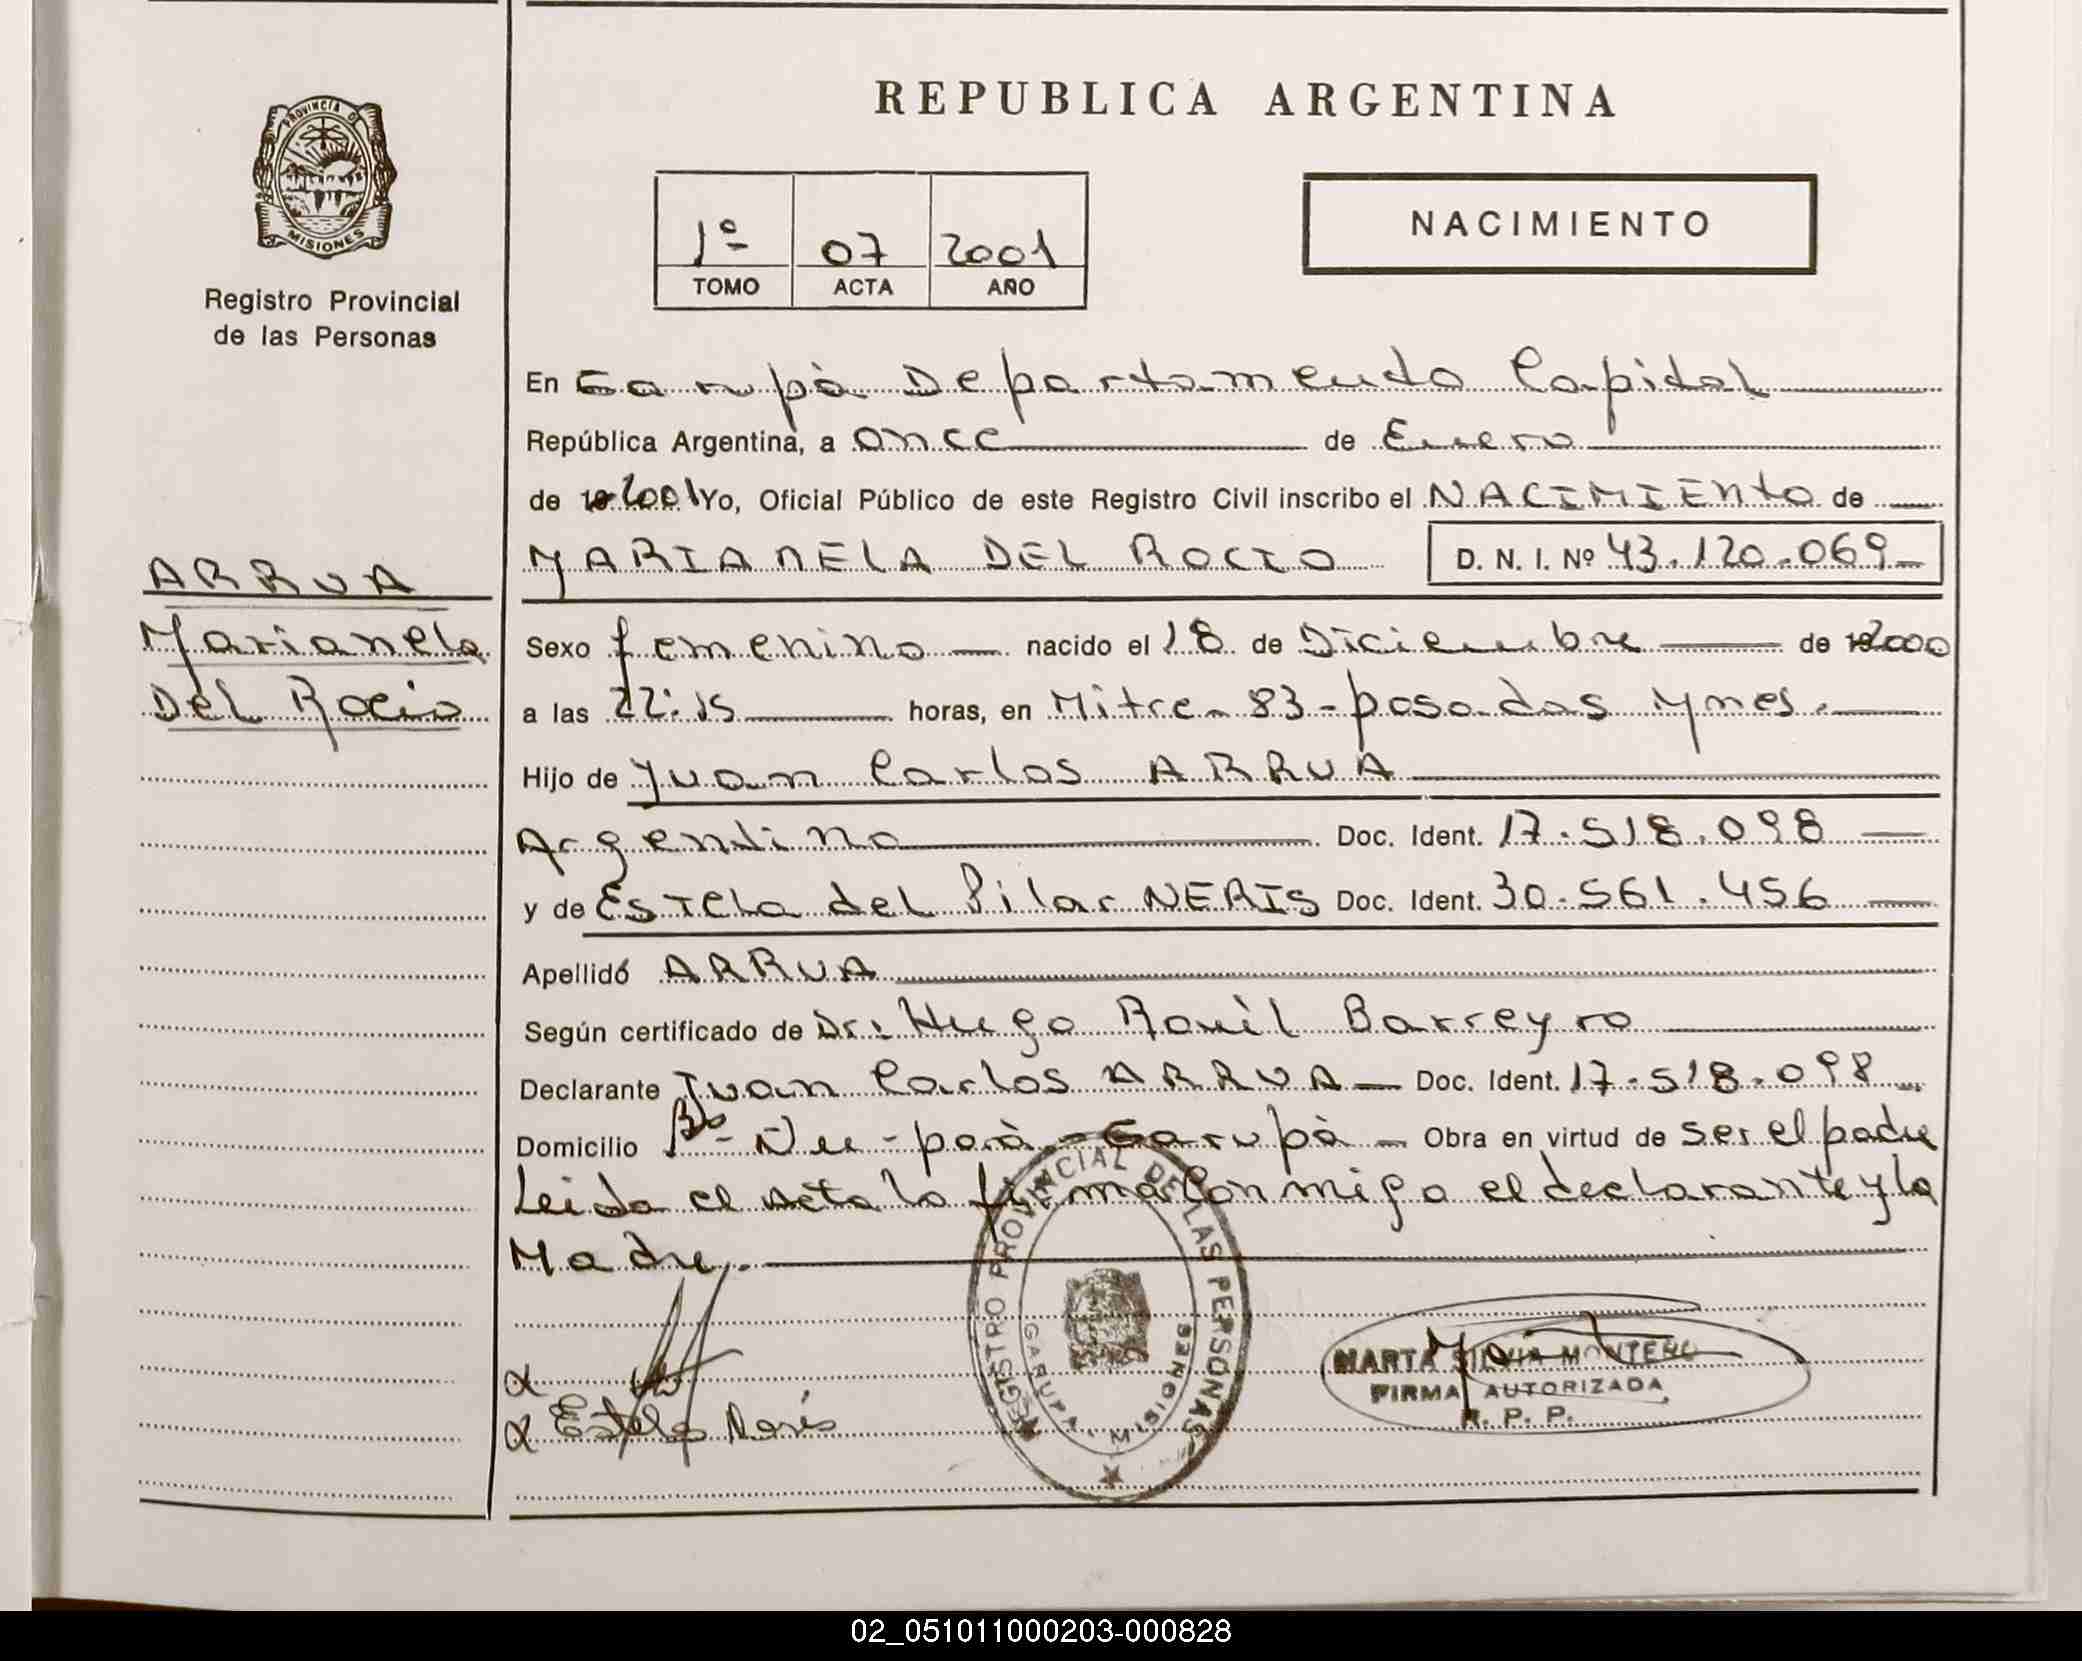 REPUBLICA ARGENTINA
PROVINCIA DE
MISIONES
Registro Provincial
de las Personas
NACIMIENTO
1º 07 2001
TOMO ACTA AÑO
En Garupà Departamento Capital
República Argentina, a once de Enero
de 19 2001 Yo, Oficial Público de este Registro Civil inscribo el NACIMIENTO de
MARIANELA DEL ROCIO D. N. I. Nº 43.120.069
ARRUA
Marianela
Del Rocio
Sexo femenino nacido el 18 de Diciembre de 19 2000
a las 22:15 horas, en Mitre 83-posadas ymes.
Hijo de Juan Carlos ARRUA
Argentino Doc. Ident. 17.518.098
y de Estela del Pilar NERIS Doc. Ident. 30.561.456
Apellido ARRUA
Según certificado de Dr: Hugo Raúl Barreyro
Declarante Juan Carlos ARRUA Doc. Ident. 17.518.098
Domicilio Bº- Ñu-porà-Garupà Obra en virtud de ser el padre
Leida el acta la firman conmigo el declarante y la
Madre.
Estela Neris
REGISTRO PROVINCIAL DE LAS PERSONAS
GARUPA, MISIONES
MARTA SILVIA MONTERO
FIRMA AUTORIZADA
R. P. P.
02_051011000203-000828